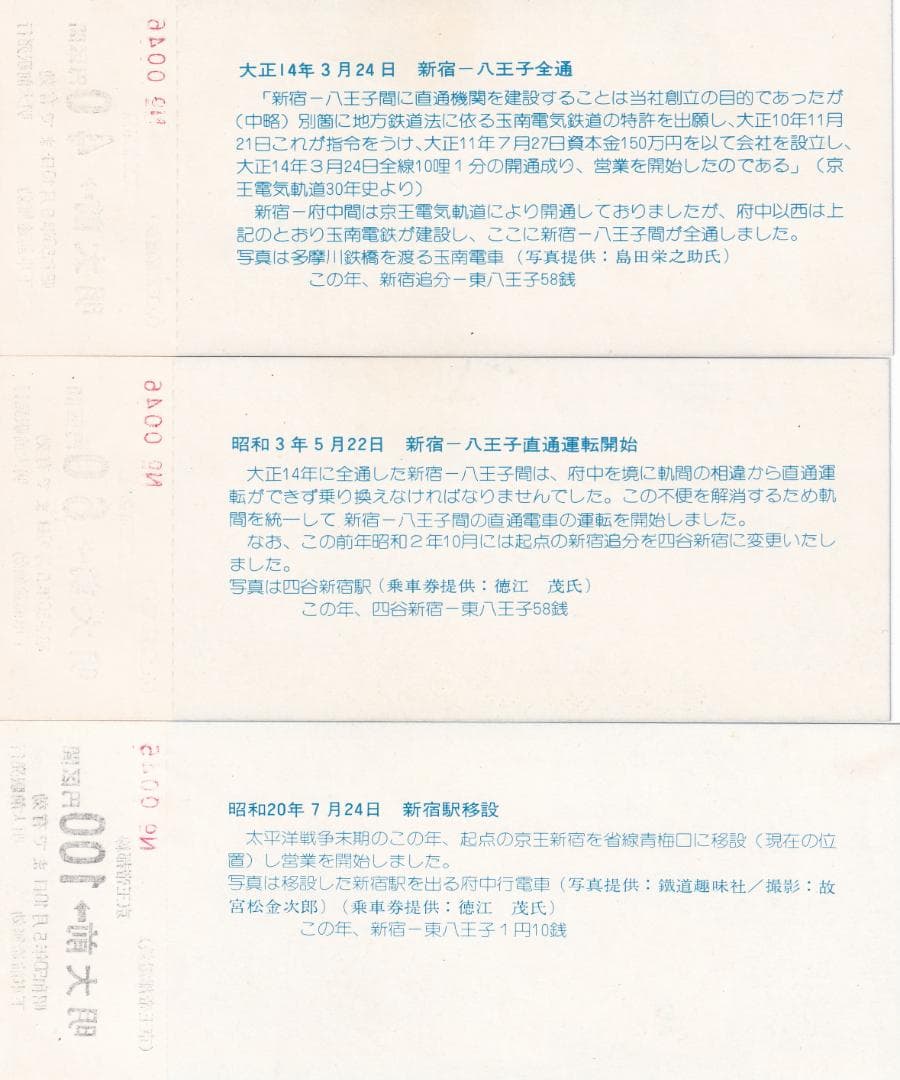 大正14年3月24日　新宿－八王子全通
「新宿－八王子間に直通機関を建設することは当社創立の目的であったが
（中略）別箇に地方鉄道法に依る玉南電気鉄道の特許を出願し、大正10年11月
21日これが指令をうけ、大正11年7月27日資本金150万円を以て会社を設立し、
大正14年3月24日全線10哩1分の開通成り、営業を開始したのである」（京
王電気軌道30年史より）
新宿－府中間は京王電気軌道により開通しておりましたが、府中以西は上
記のとおり玉南電鉄が建設し、ここに新宿－八王子間が全通しました。
写真は多摩川鉄橋を渡る玉南電車（写真提供：島田栄之助氏）
この年、新宿追分－東八王子58銭
№ 0046
昭和3年5月22日　新宿－八王子直通運転開始
大正14年に全通した新宿－八王子間は、府中を境に軌間の相違から直通運
転ができず乗り換えなければなりませんでした。この不便を解消するため軌
間を統一して 新宿－八王子間の直通電車の運転を開始しました。
なお、この前年昭和2年10月には起点の新宿追分を四谷新宿に変更いたし
ました。
写真は四谷新宿駅（乗車券提供：徳江　茂氏）
この年、四谷新宿－東八王子58銭
№ 0046
昭和20年7月24日　新宿駅移設
太平洋戦争末期のこの年、起点の京王新宿を省線青梅口に移設（現在の位
置）し営業を開始しました。
写真は移設した新宿駅を出る府中行電車（写真提供：鐵道趣味社／撮影：故
宮松金次郎）（乗車券提供：徳江　茂氏）
この年、新宿－東八王子1円10銭
100